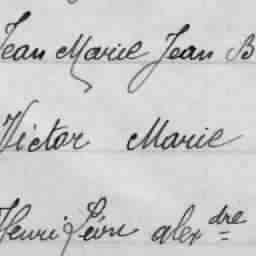 Jean Marie Jean B
Victor Marie
Henri Léon alexdre